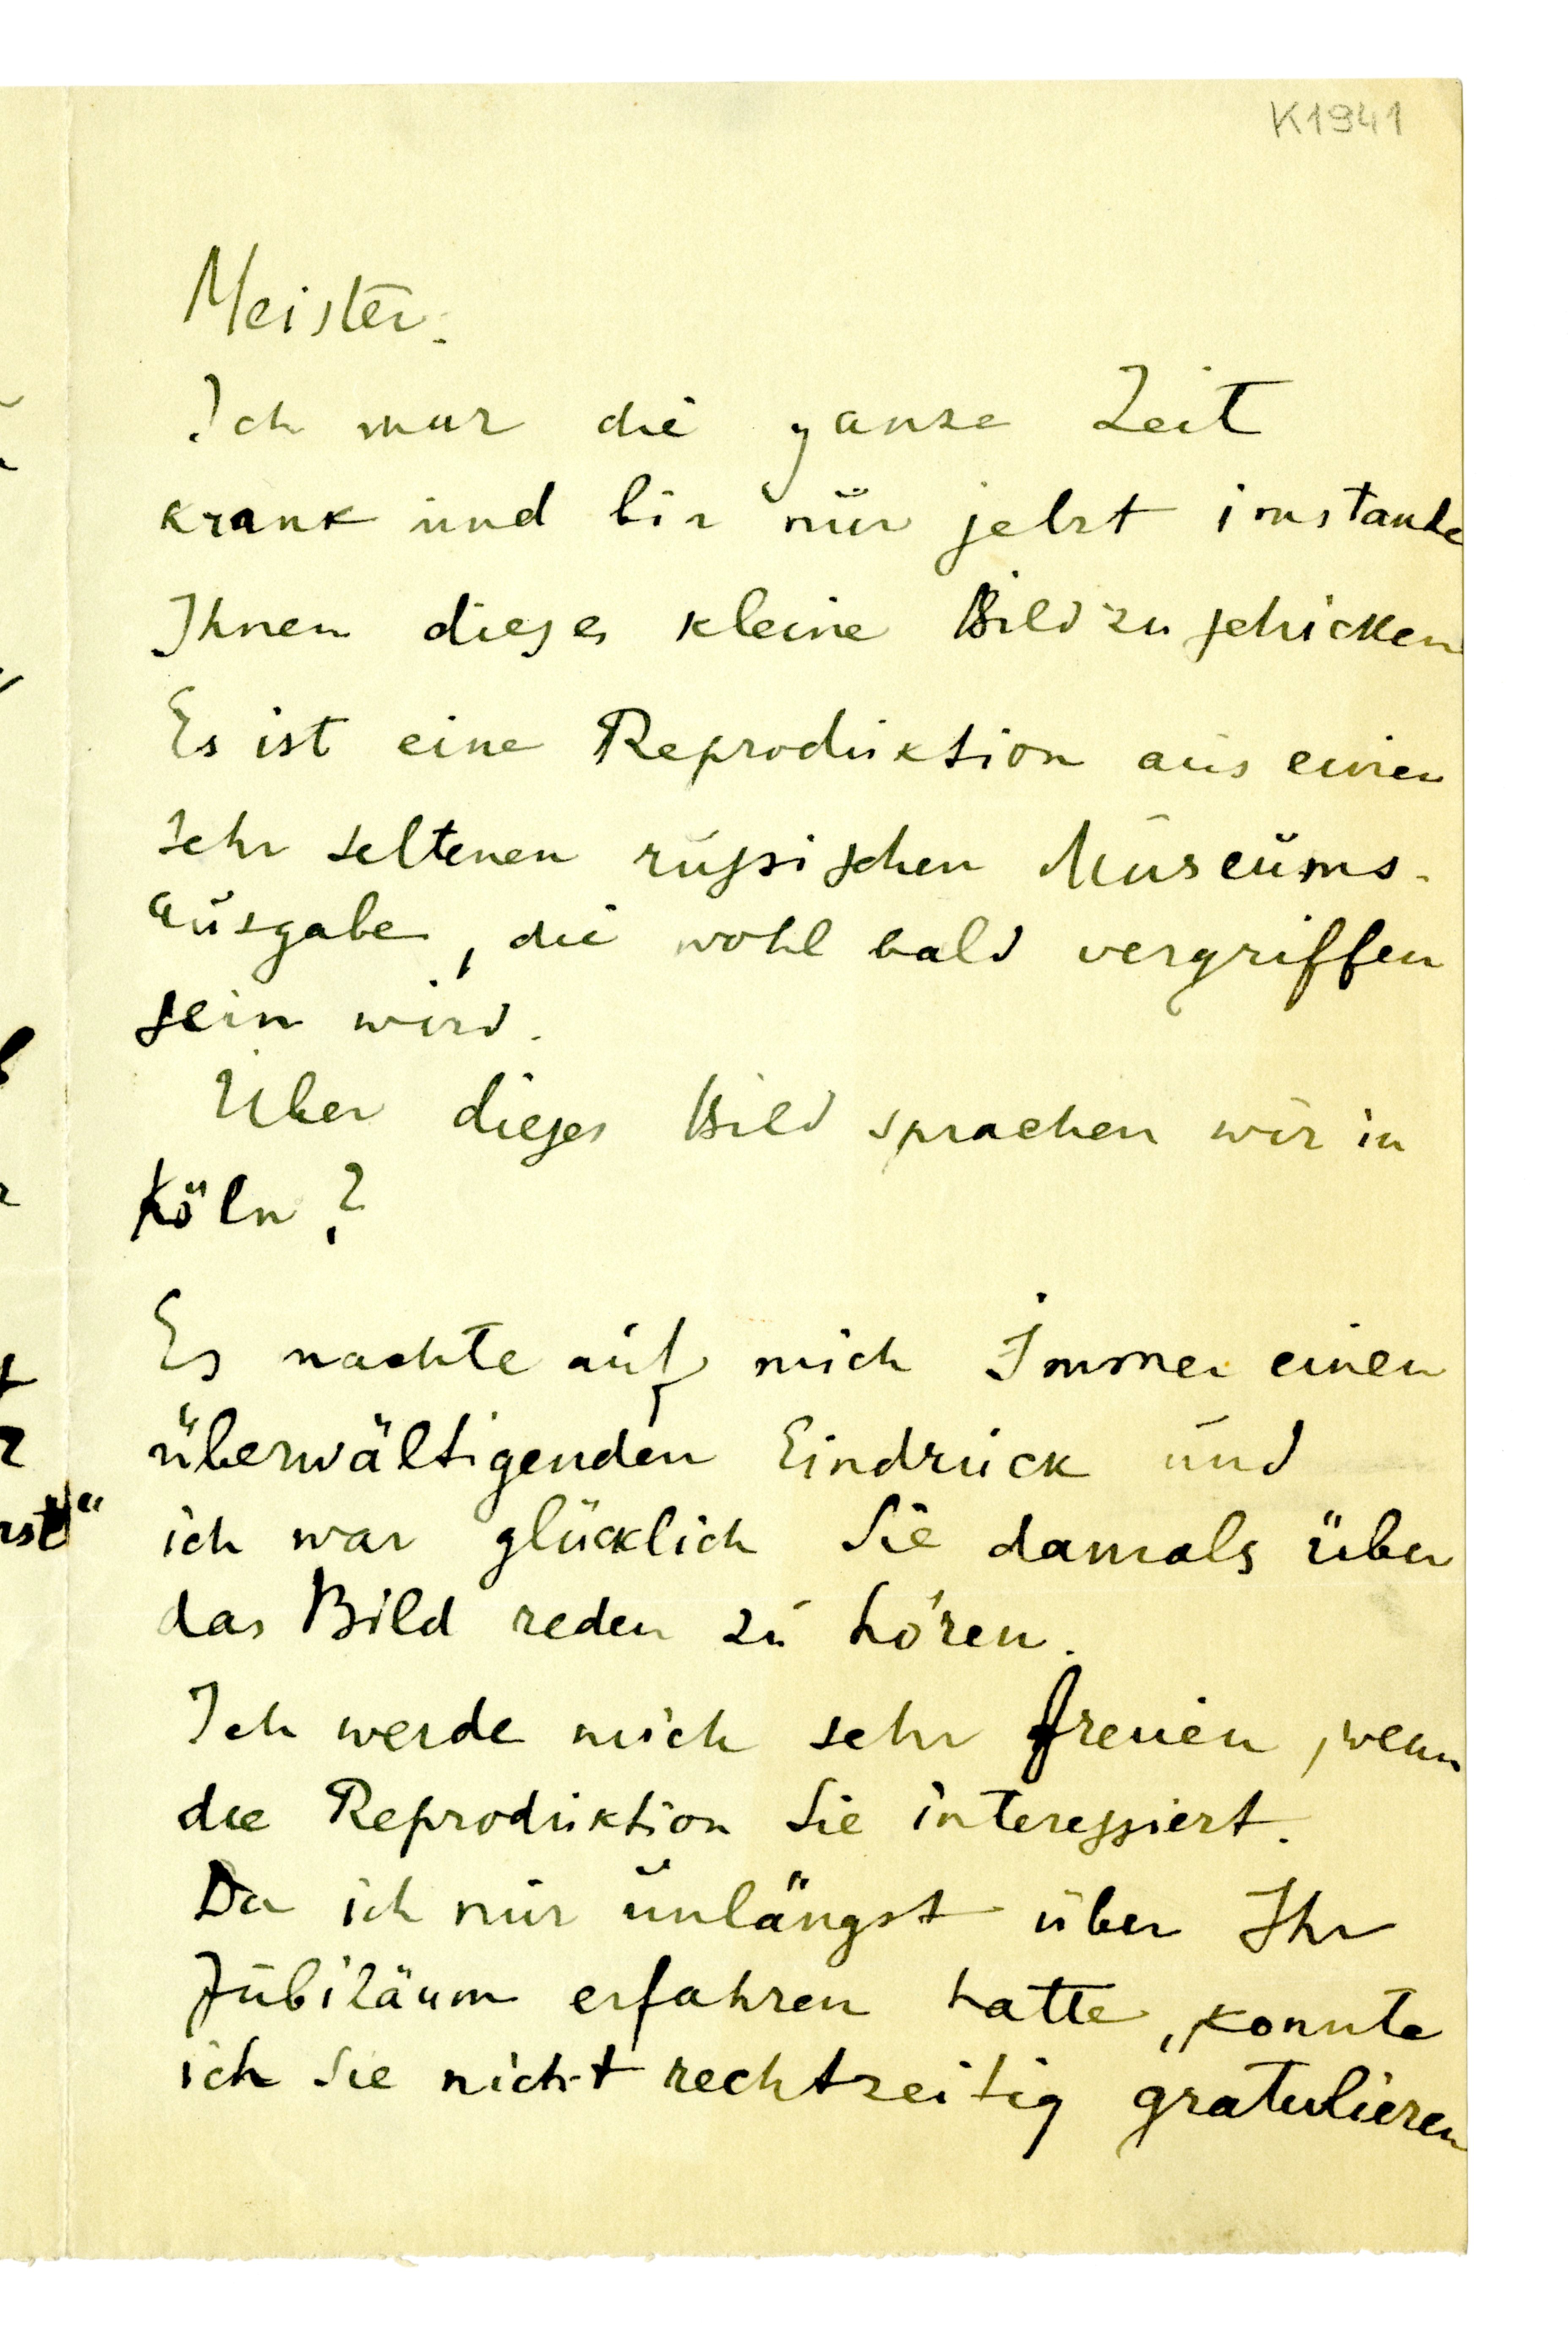 K1941
Meister.
Ich war die ganze Zeit
krank und bin nur jetzt imstande
Ihnen dieses kleine Bild zu schicken
Es ist eine Reproduktion aus einer
sehr seltenen russischen Museums-
ausgabe, die wohl bald vergriffen
sein wird.
Über dieses Bild sprachen wir in
Köln?
Es machte auf mich Immer einen
überwältigenden Eindruck und
ich war glücklich Sie damals über
das Bild reden zu hören.
Ich werde mich sehr freuen, wenn
die Reproduktion Sie interessiert.
Da ich nur unlängst über Ihr
Jubiläum erfahren hatte, konnte
ich Sie nicht rechtzeitig gratulieren